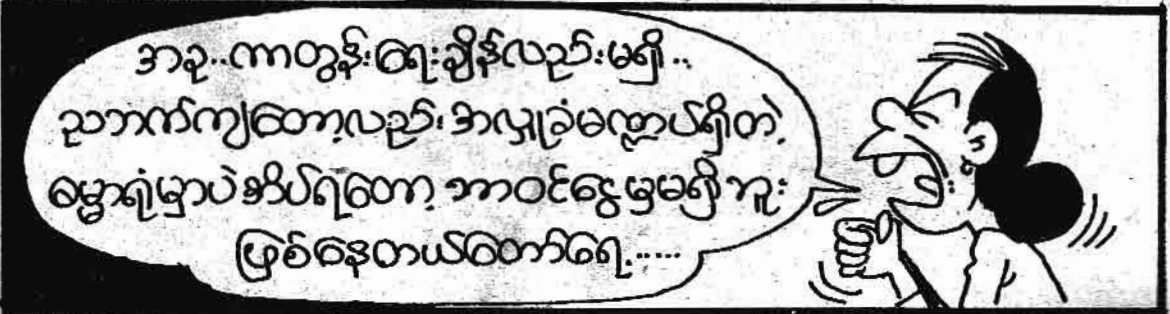 အခု..ကာတွန်းရေးချိန်လည်းမရှိ..
ညဘက်ကျတော့လည်းအလှူခံမဏ္ဍပ်ရှိတဲ့
ဓမ္မာရုံမှာပဲအိပ်ရတော့ ဘာဝင်ငွေမှမရှိဘူး
ဖြစ်နေတယ်တော်ရေ့.....